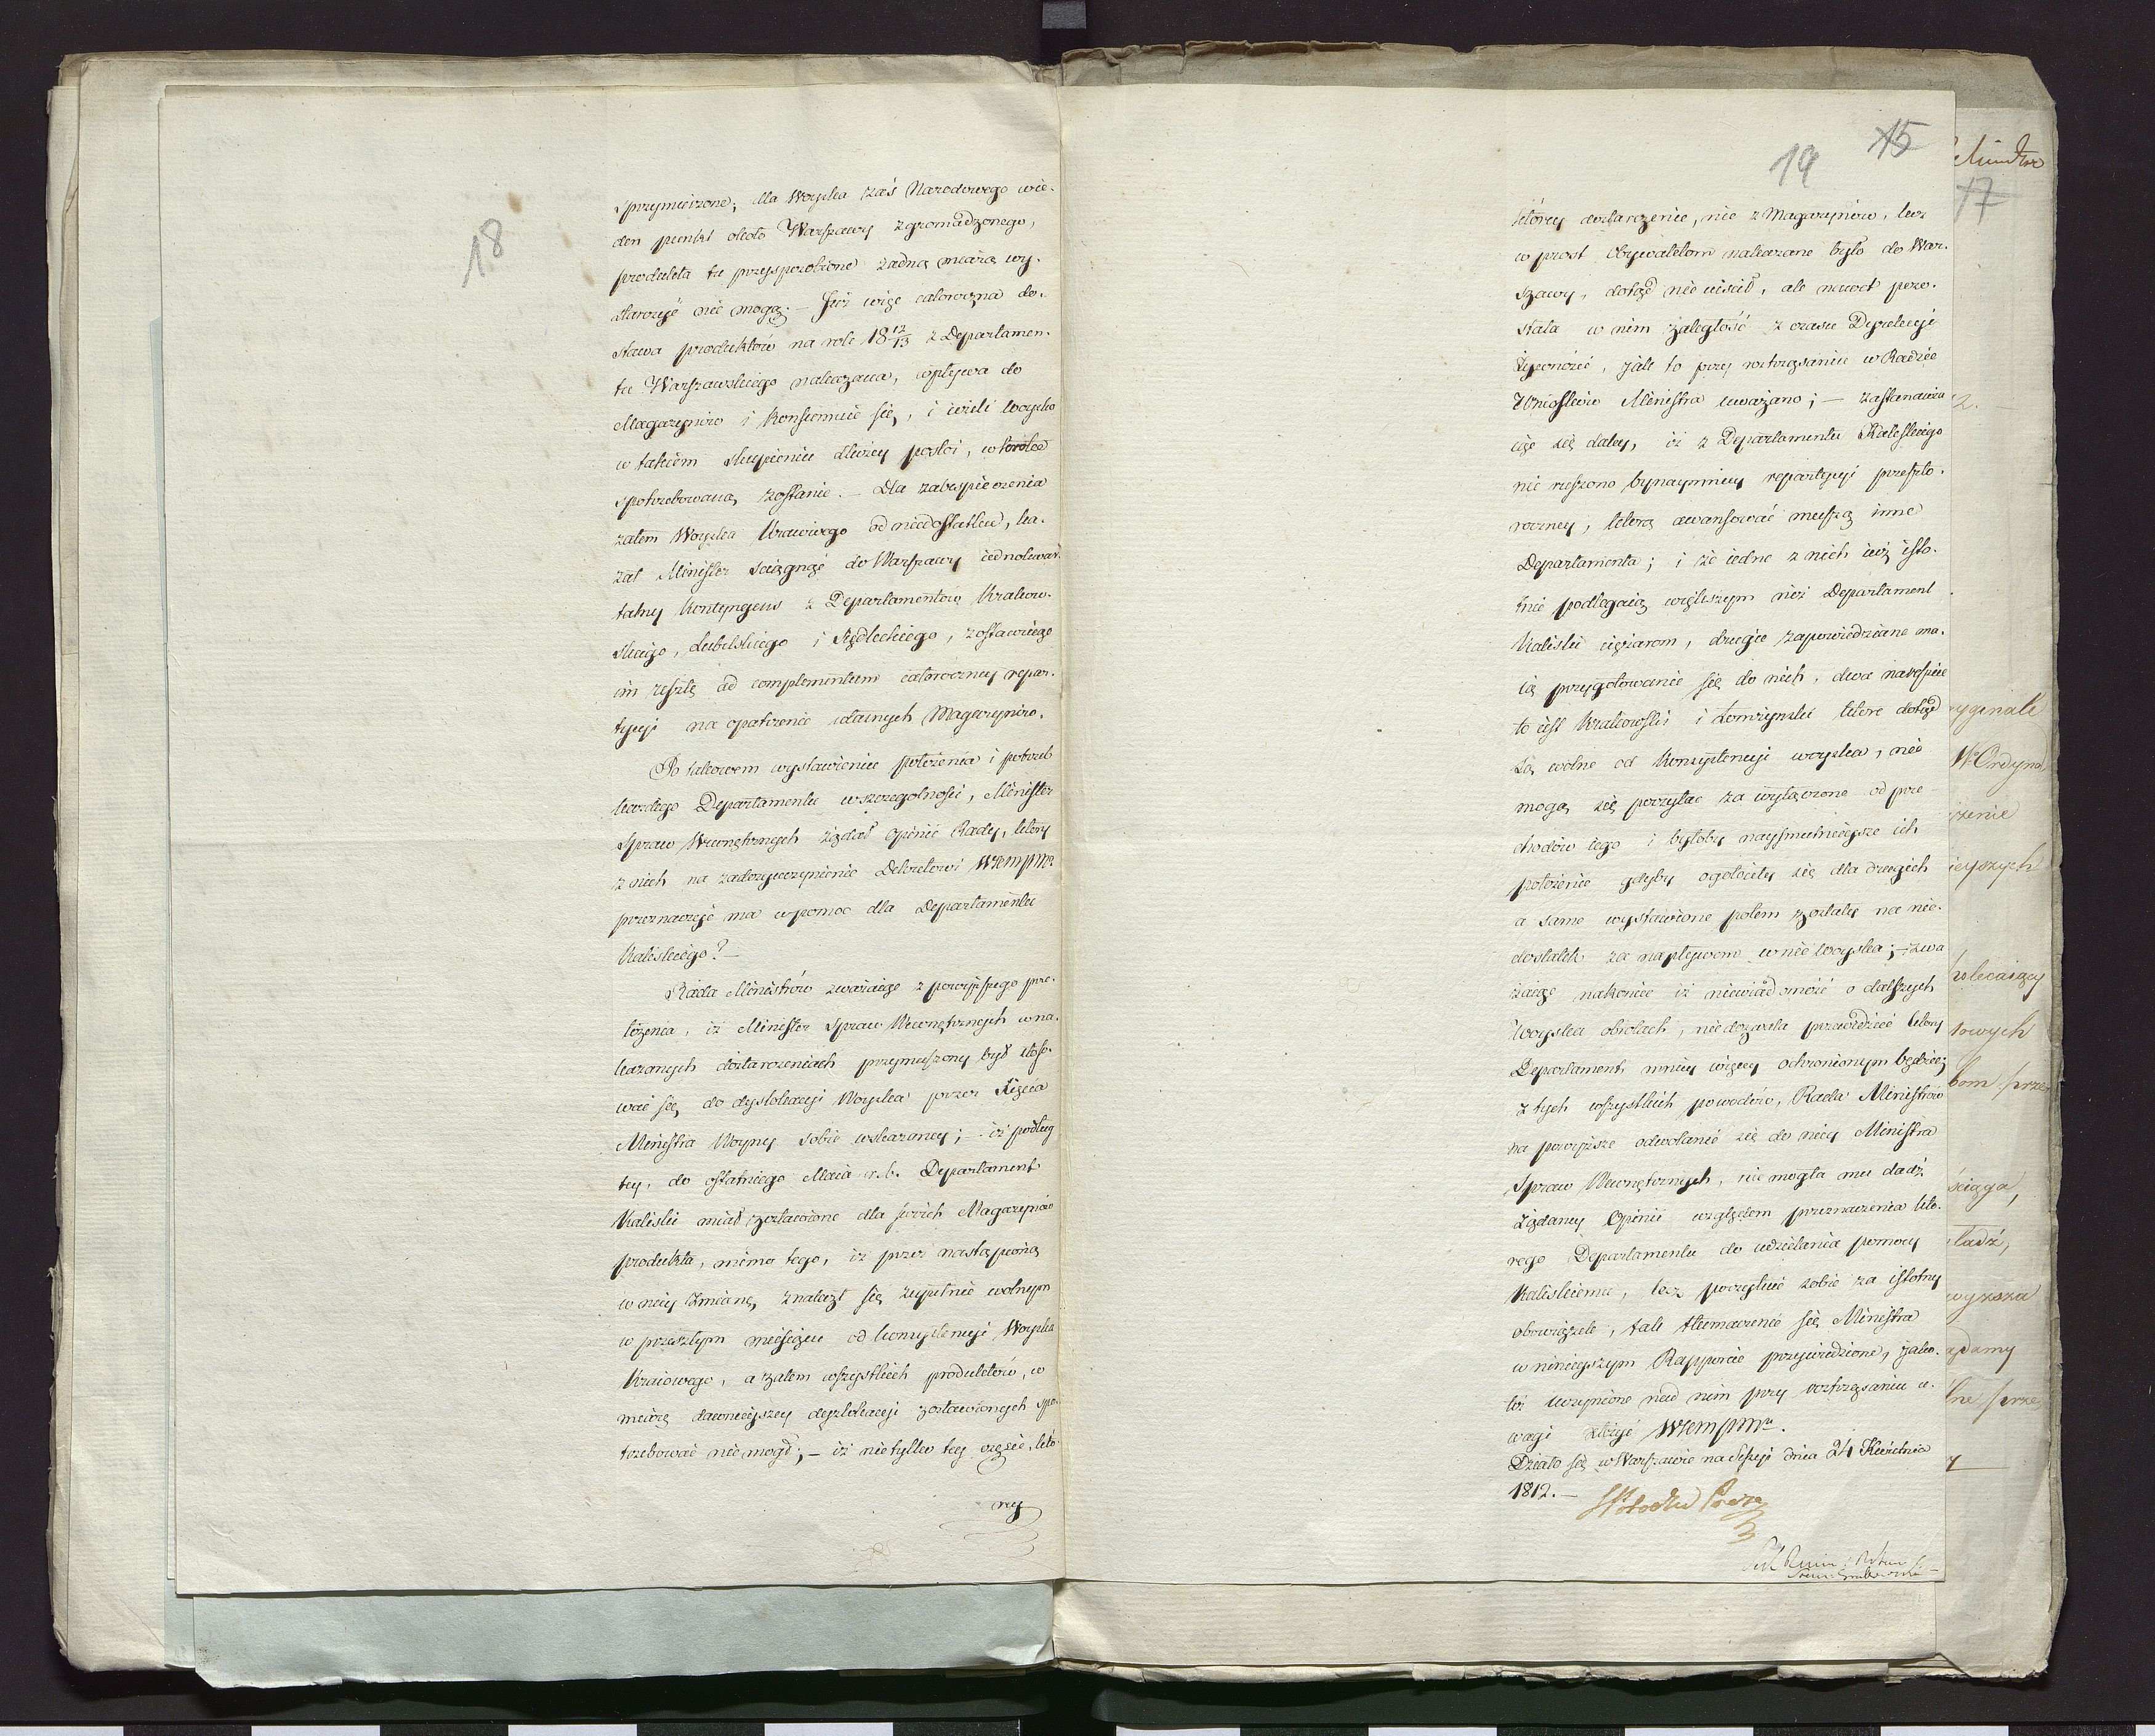 18
sprzymierzone; dla Woyska zaś Narodowego wie-
den punkt około Warszawy zgromadzonego,
produkta tu przysposobione żadną miarą wy-
starczyć nie mogą. – Już więc całoroczna do-
stawa produktów na rok 18 12/13 z Departamen-
tu Warszawskiego nakazana, wpływa do
Magazynów i konsumuie się, i ieżeli woysko
w takiem skupieniu dłużey postoi, wkrótce
spotrzebowaną zostanie. – Dla zabezpieczenia
zatem Woyska kraiowego od niedostatku, ka-
zał Minister ściągnąć do Warszawy iednokwar-
talny kontyngens z Departamentów Krakow-
skiego, Lubelskiego i Siedleckiego, zostawuiąc
im resztę ad complementum całoroczney repar-
tycyi na opatrzenie własnych Magazynów.
Po takowem wystawieniu położenia i potrzeb
każdego Departamentu w szczególności, Minister
Spraw Wewnętrznych żądał opinii Rady, który
z nich na zadosyćuczynienie Dekretowi WKMPMu
przeznaczyć ma w pomoc dla Departamentu
Kaliskiego? –
Rada Ministrów zważaiąc z powyższego prze-
łożenia, iż Minister Spraw Wewnętrznych w na-
kazanych dostarczeniach przymuszony był stoso-
wać się do dyslokacyi Woyska przez Xięcia
Ministra Woyny sobie wskazaney; – iż podług
tey, do ostatniego Maia r.b. Departament
Kaliski miał zostawione dla swoich Magazynów
produkta, mimo tego, iż przez nastąpioną
w niey zmianę, znalazł się zupełnie wolnym
w przeszłym miesiącu od konsystencyi Woyska
Kraiowego, a zatem wszystkich produktów, w
miarę dawnieyszey dyslokacyi zostawionych spo-
trzebować nie mógł; – iż nietylko tey części, któ-
rey
19 15
którey dostarczenie, nie z Magazynów, lecz
w prost Obywatelom nakazane było do War-
szawy, dotąd nie uiścił, ale nawet pozo-
stała w nim zaległość z czasu Dyrekcyi
żywności, jak to przy roztrząsaniu w Radzie
Wniosków Ministra uważano; – zastanawia-
iąc się daley, iż z Departamentu Kaliskiego
nie ruszono bynaymniey repartycyi przeszło-
roczney, którą awansować muszą inne
Departamenta; i że iedne z nich iuż isto-
tnie podlegaią większym niż Departament
Kaliski ciężarom, drugie zapowiedziane ma-
ią przygotowanie się do nich, dwa nareszcie
to iest Krakowski i Łomżyński które dotąd
są wolne od konsystencyi woyska, nie
mogą się poczytać za wyłączone od prze-
chodów iego i byłoby naysmutnieysze ich
położenie gdyby ogołociły się dla drugich
a same wystawione potem zostały na nie-
dostatek za napływem w nie woyska; – zwa-
żaiąc nakoniec iż niewiadomość o dalszych
Woyska obrotach, niedozwala przewidzieć który
Departament mniey więcey ochronionym będzie;
z tych wszystkich powodów, Rada Ministrów
na powyższe odwołanie się do niey Ministra
Spraw Wewnętrznych, nie mogła mu dadź
żądaney Opinii względem przeznaczenia któ-
rego Departamentu do udzielania pomocy
Kaliskiemu, lecz poczytuie sobie za istotny
obowiązek, tak tłumaczenie się Ministra
w ninieyszym Rapporcie przywiedzione, jako-
też uczynione nad nim przy roztrząsaniu u-
wagi złożyć WKMPMu.
Działo się w Warszawie na Sessyi dnia 24 Kwietnia
1812. –
17
2.
W Ordyna
ieyszych
ściąga,
wyższa